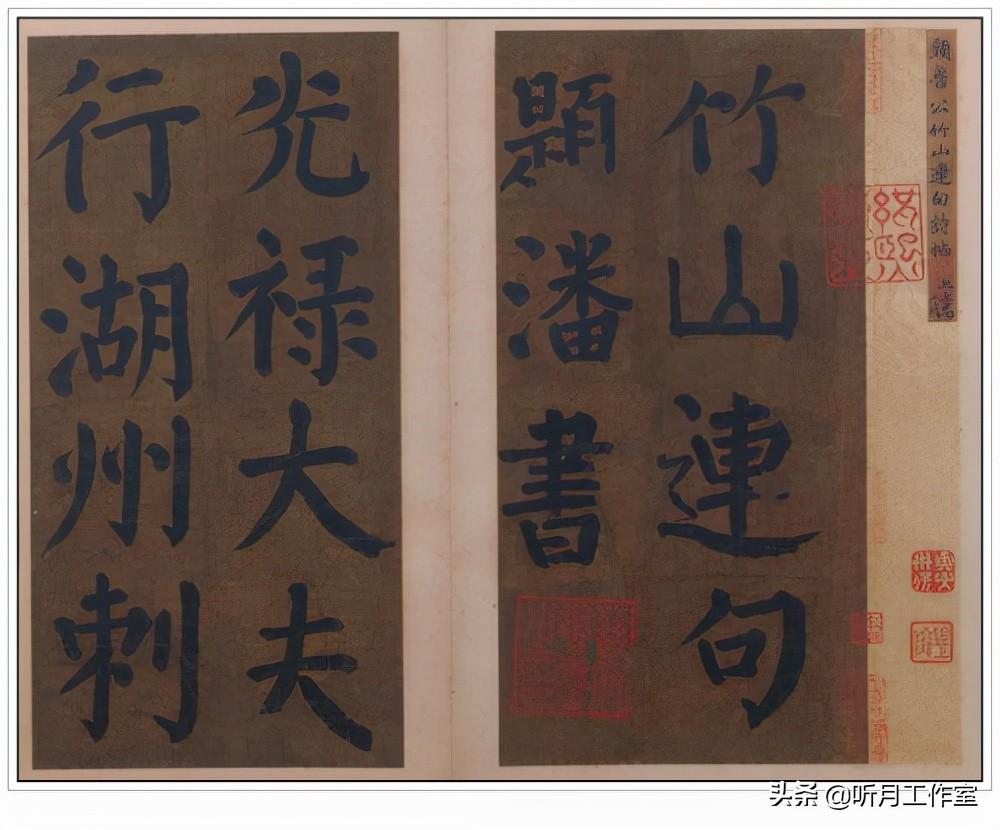 顔魯公竹山連句詩帖 真蹟
竹山連句
題潘書
光禄大夫
行湖州刺
头条 @听月工作室